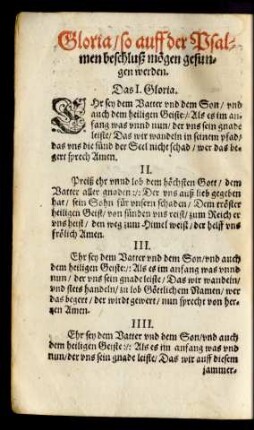 Gloria / so auff der Psal-
men beschluß mögen gesun-
gen werden.
Das I. Gloria.
EHr sey dem Vatter vnd dem Son / vnd
auch dem heiligen Geiste / Als es im an-
fang was vnnd nun / der vns sein gnade
leiste / Das wir wandeln in seinem pfad /
das vns die sünd der Seel nicht schad / wer das be-
gert sprech Amen.
II.
Preiß ehr vnnd lob dem höchsten Gott / dem
Vatter aller gnaden :/: Der vns auß lieb gegeben
hat / sein Sohn für vnsern schaden / Dem tröster
heiligen Geist / von sünden vns reist / zum Reich er
vns heist / den weg zum Himel weist / der helff vns
frölich Amen.
III.
Ehr sey dem Vatter vnd dem Son / vnd auch
dem heiligen Geiste :/: Als es im anfang was vnnd
nun / der vns sein gnade leiste / Das wir wandeln /
vnd stets handeln / in lob Göttlichem Namen / wer
das begert / der wirdt gewert / nun sprecht von her-
tzen Amen.
IIII.
Ehr sey dem Vatter vnd dem Son / vnd auch
dem heiligen Geiste :/: Als es im anfang was vnd
nun / der vns sein gnade leiste / Das wir auff diesem
jammer-